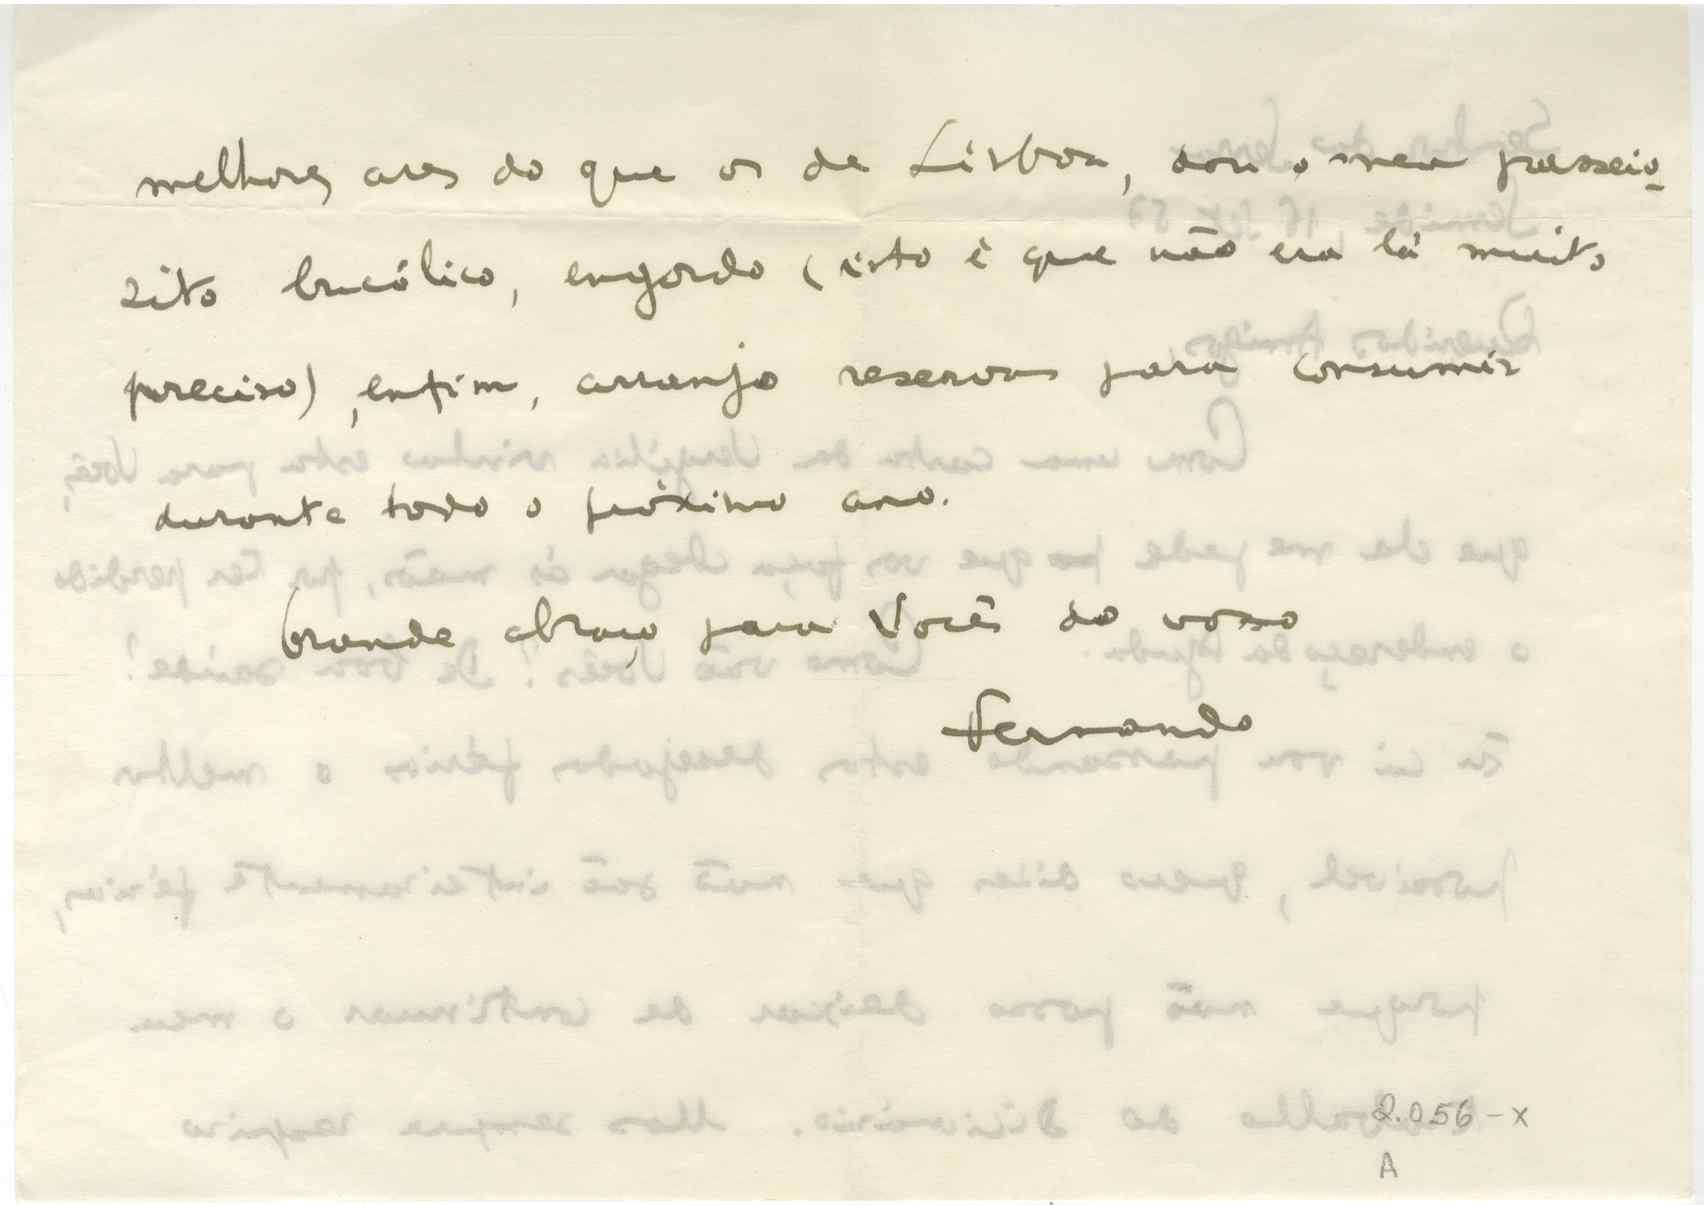 melhores ares do que os de Lisboa, dou o meu passeio-
zito bucólico, engordo (isto é que não era lá muito
preciso), enfim, arranjo reservas para consumir
durante todo o próximo ano.
Grande abraço para Vocês do vosso
Fernando
2.056-X
A